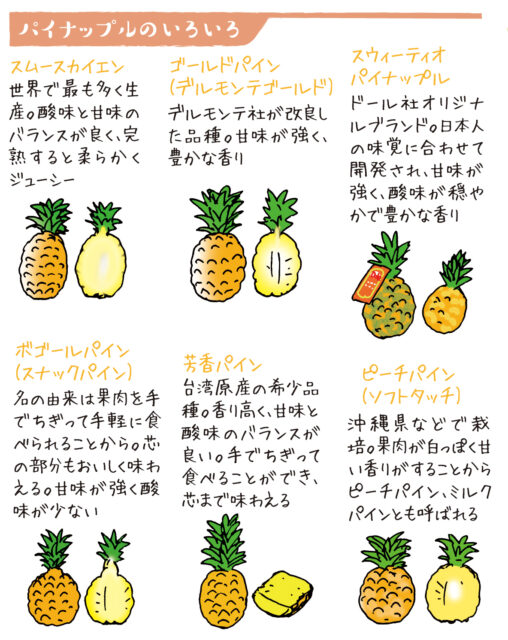 パイナップルのいろいろ
スムースカイエン
世界で最も多く生
産。酸味と甘味の
バランスが良く、完
熟すると柔らかく
ジューシー
ゴールドパイン
(デルモンテゴールド)
デルモンテ社が改良し
た品種。甘味が強く、
豊かな香り
スウィーティオ
パイナップル
ドール社オリジナ
ルブランド。日本人
の味覚に合わせて
開発され、甘味が
強く、酸味が穏や
かで豊かな香り
ボゴールパイン
(スナックパイン)
名の由来は果肉を手
でちぎって手軽に食
べられることから。芯
の部分もおいしく味わ
える。甘味が強く酸
味が少ない
芳香パイン
台湾原産の希少品
種。香り高く、甘味と
酸味のバランスが
良い。手でちぎって
食べることができ、
芯まで味わえる
ピーチパイン
(ソフトタッチ)
沖縄県などで栽
培。果肉が白っぽく甘
い香りがすることから
ピーチパイン、ミルク
パインとも呼ばれる